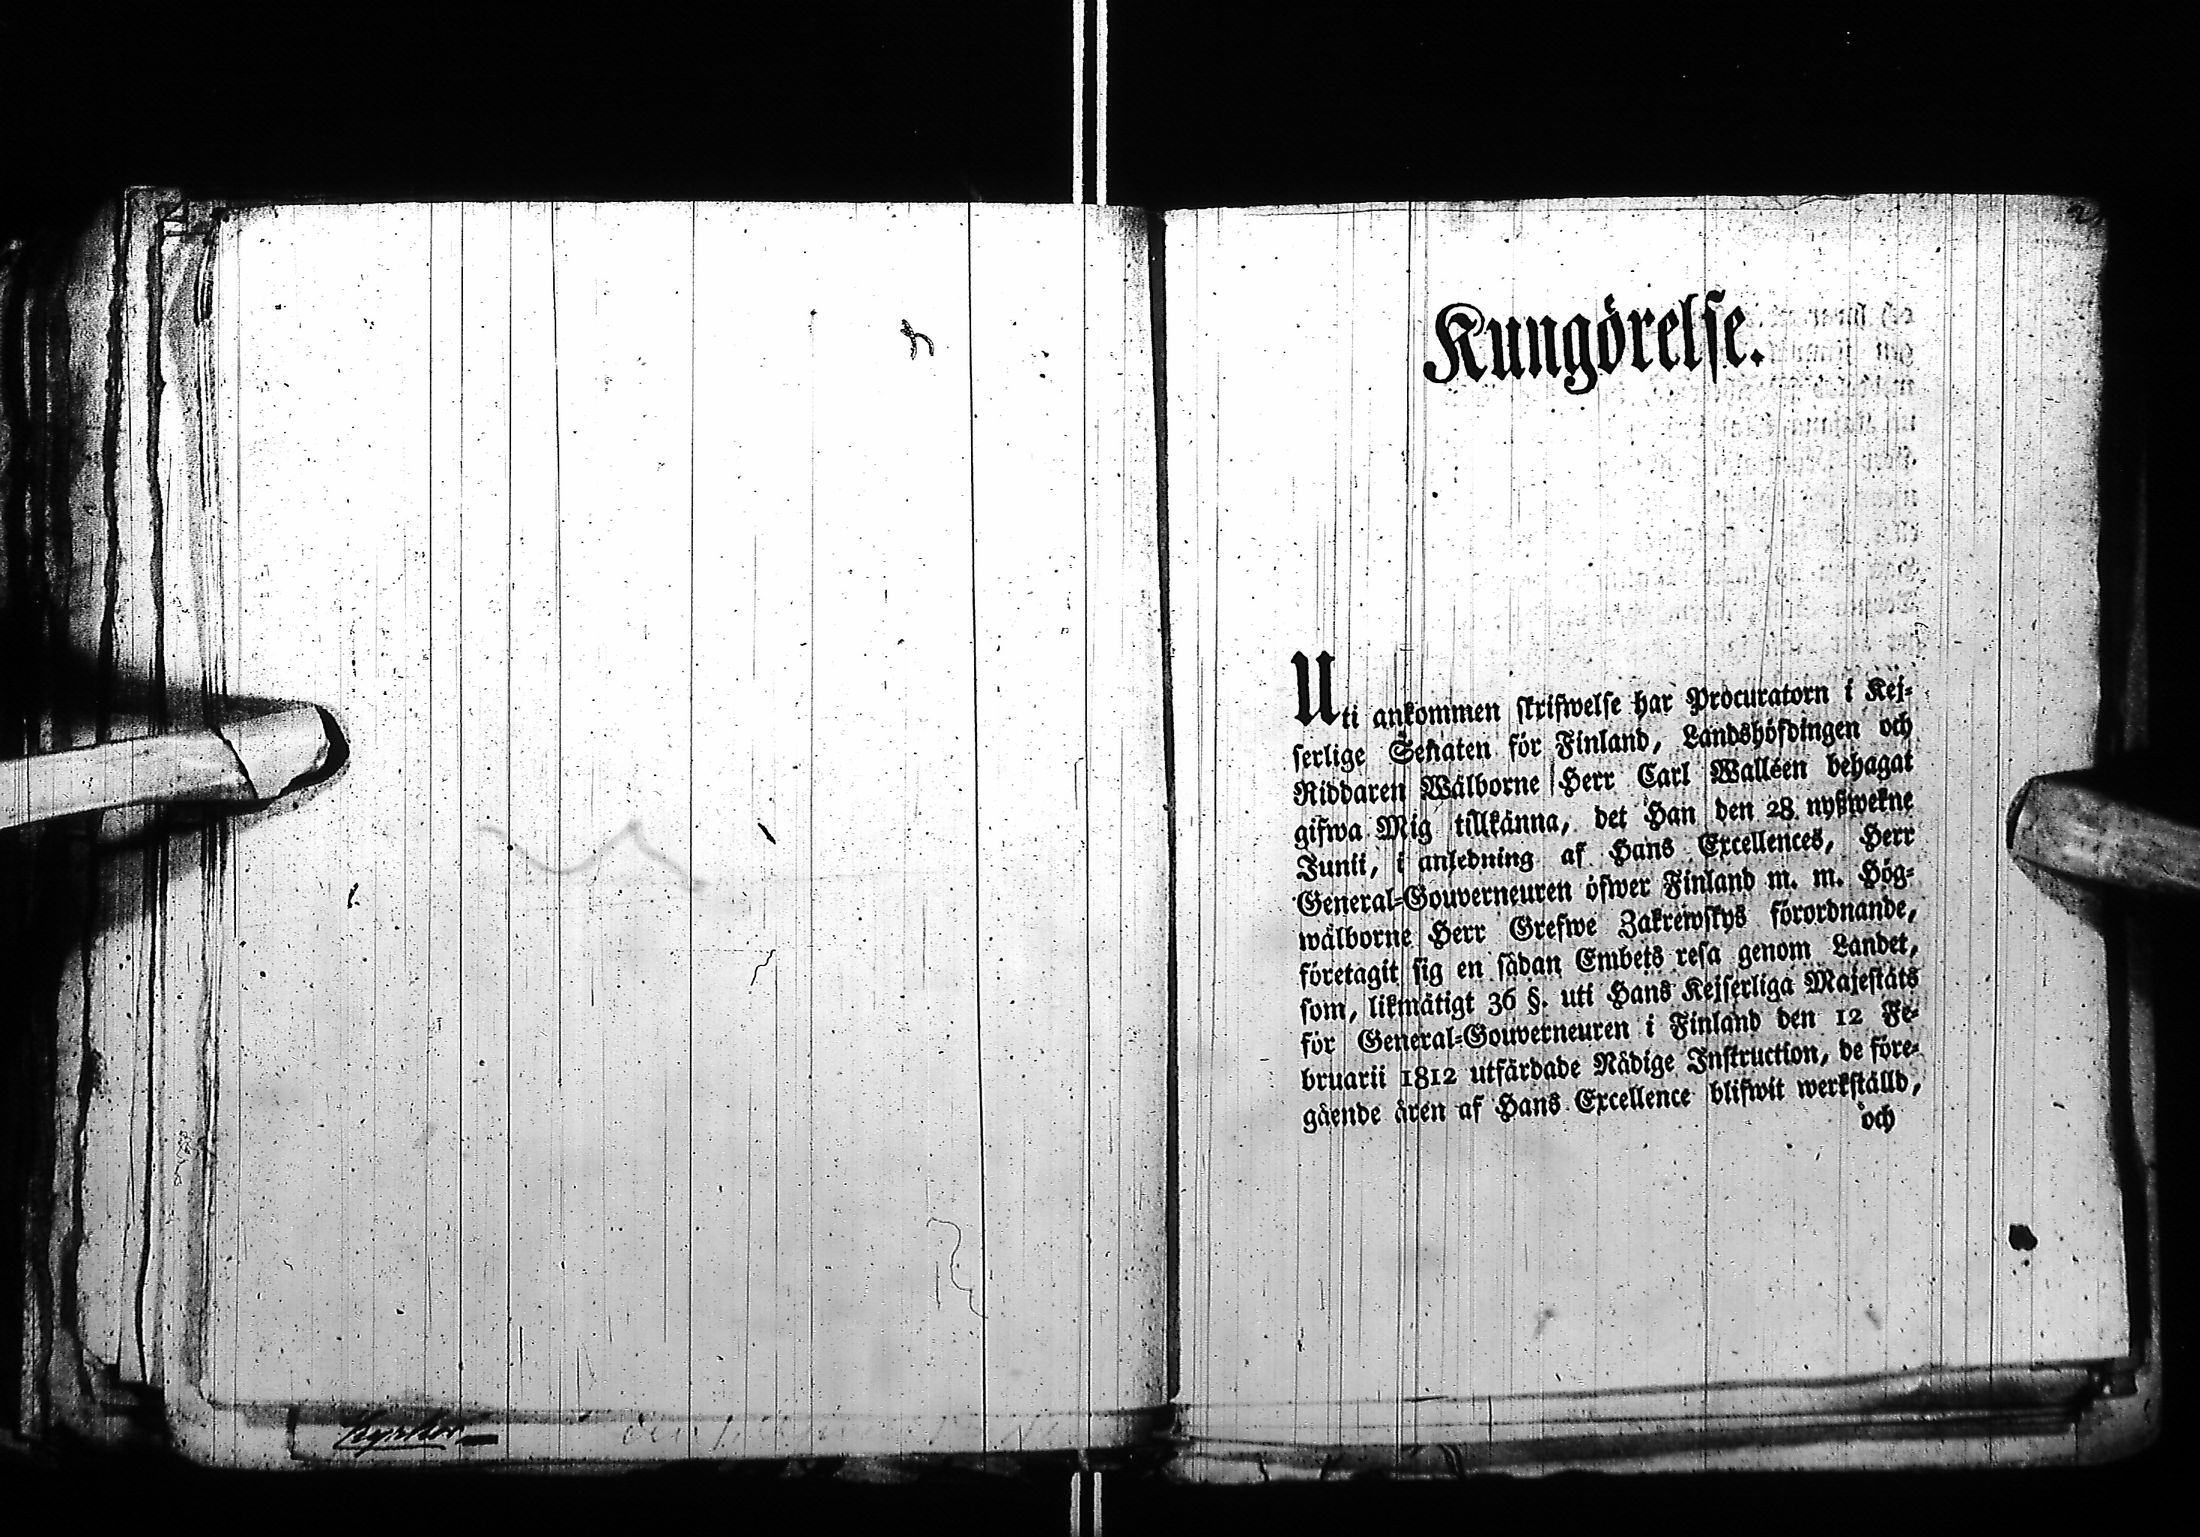 Kungörelse.
Uti ankommen skrifwelse har Procuratorn i Kej-
serlige Senaten för Finland, Landshöfdingen och
Riddaren Wälborne Herr Carl Walléen behagat
gifwa Mig tillkänna, det Han den 28 nyßwekne
Junii, i anledning af Hans Excellences, Herr
General-Gouverneuren öfwer Finland m. m. Hög-
wälborne Herr Grefwe Zakrewskys förordnande,
företagit sig en sådan Embets resa genom Landet,
som, likmätigt 36 §. uti Hans Kejserliga Majestäts
för General-Gouverneuren i Finland den 12 Fe-
bruarii 1812 utfärdade Nådige Instruction, de före-
gående åren af Hans Excellence blifwit werkställd,
och